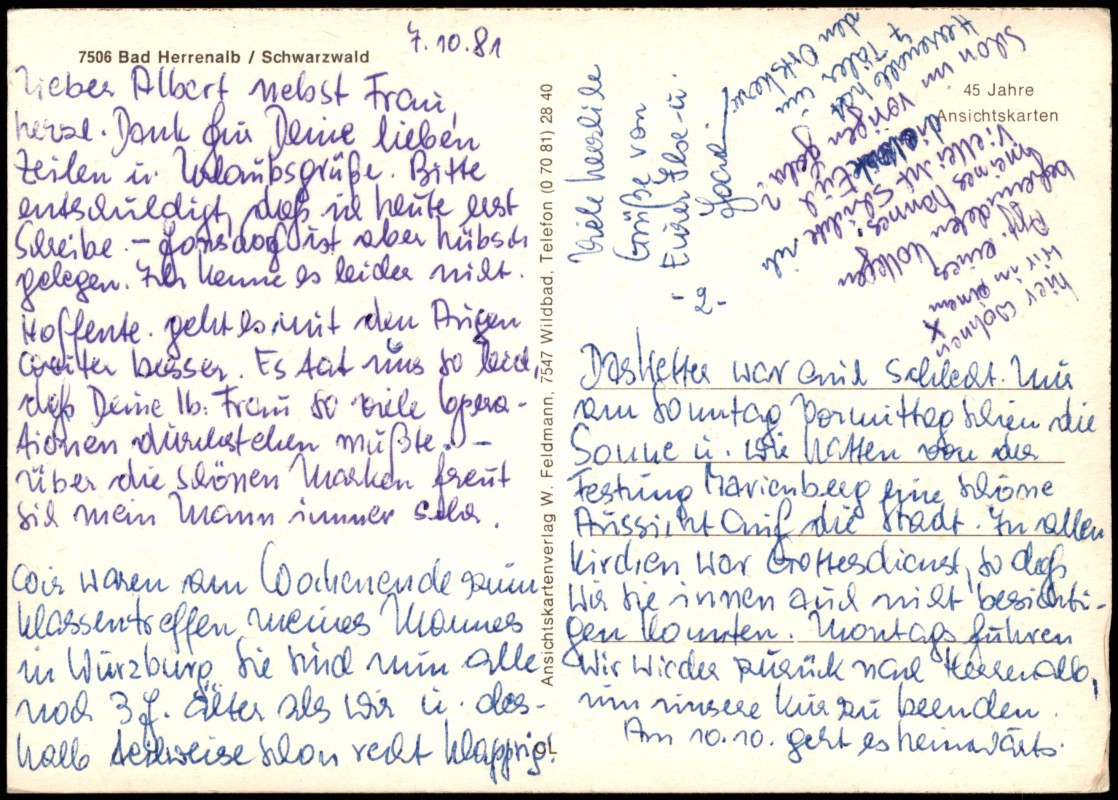 7.10.81
7506 Bad Herrenalb / Schwarzwald
Lieber Albert nebst Frau,
herzl. Dank für Deine lieben
Zeilen u. Urlaubsgrüße. Bitte
entschuldigt, daß ich heute erst
Schreibe. – ist aber hübsch
gelegen. Ich kenne es leider nicht.
Hoffentl. geht es mit den Augen
weiter besser. Es tat uns so leid,
daß Deine lb. Frau so viele Opera-
tionen durchstehen mußte. –
über die schönen Marken freut
sich mein Mann immer sehr.
Wir waren am Wochenende zum
Klassentreffen meines Mannes
in Würzburg. Sie sind nun alle
noch 3 J. älter als wir u. des-
halb teilweise schon recht klapprig!
Ansichtskartenverlag W. Feldmann, 7547 Wildbad, Telefon (0 70 81) 28 40
OL
45 Jahre
Ansichtskarten
- 2 -
Das Wetter war auch schlecht. Nur
am Sonntag Vormittag schien die
Sonne u. wir hatten von der
Festung Marienberg eine schöne
Aussicht auf die Stadt. In allen
Kirchen war Gottesdienst, so daß
wir sie innen auch nicht besichti-
gen konnten. Montags fuhren
wir wieder zurück nach Herrenalb,
um unsere Kur zu beenden.
Am 10.10. geht es heimwärts.
Viele herzliche
Grüße von
Eurer Ilse u.
Herrenalb hat
7 Täler um
den Ortskern!
Schon im
vorigen Jahr?
Vielleicht schickte ich
hier wohnen
wir in einem
App. eines
befreundeten Kollegen
meines Mannes
X